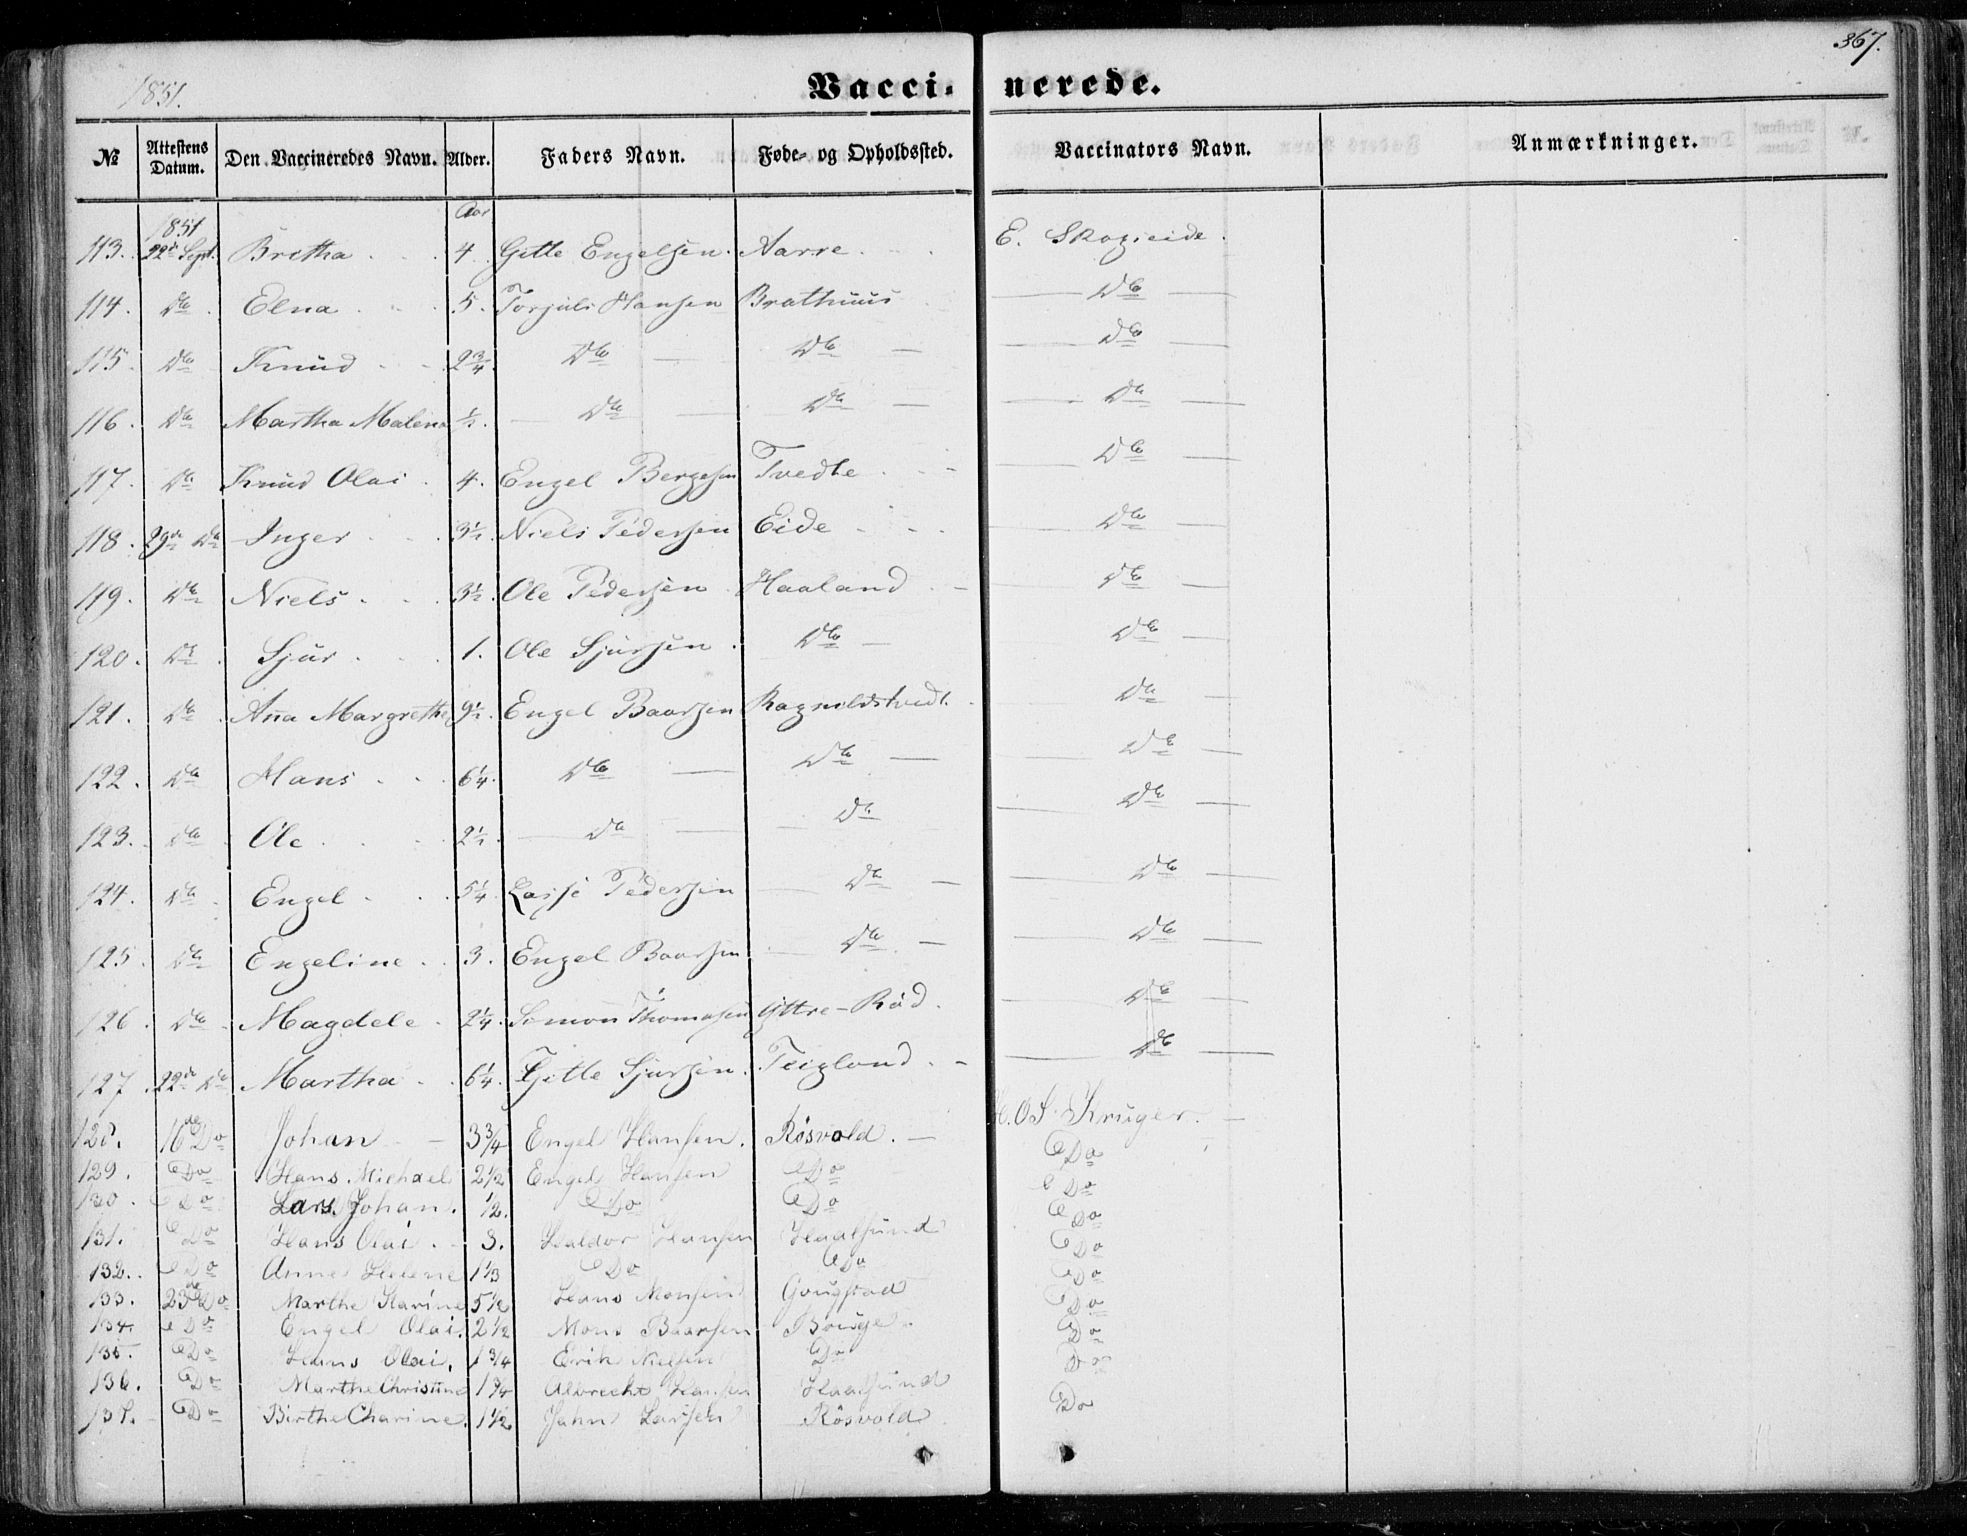 367.
1851.
Vacci- nerede.
No Attestens Datum. Den Vaccineredes Navn. Alder. Faders Navn. Føde- og Opholdssted. Vaccinators Navn. Anmærkninger.
1851 Aar
113. 22de Sept. Bretha 4. Gitle Engelsen. Aarre E. Skogseide.
114. Do Elna 5. Torjuls Hansen Brathuus Do
115. Do Knud 2 3/4 Do Do Do
116. Do Martha Malena 1/2. Do Do Do
117. Do Knud Olai 4. Engel Bergesen Tvedte Do
118. 29de Do Inger 3 1/2. Niels Pedersen Eide Do
119. Do Niels 3 1/2. Ole Pedersen Haaland Do
120. Do Sjur 1. Ole Sjursen Do Do
121. Do Ana Margrethe 9 1/2. Engel Baarsen Ragnildstvedt. Do
122. Do Hans 6 1/4. Do Do Do
123. Do Ole 2 1/2. Do Do Do
124. Do Engel 5 1/4 Lasse Pedersen Do Do
125. Do Engeline 3. Engel Baarsen Do Do
126. Do Magdele 2 1/4. Simon Thomasen Yttre-Röd. Do
127. 22de Do Martha 6 1/4. Gitle Sjursen. Teigland Do
128. 16de Do Johan 3 3/4 Engel Hansen. Rösvold. O.S. Kruger.
129. Do Hans Michael 2 1/2 Engel Hansen Do Do
130. Do Lars Johan. 1/2. Do Do Do
131. Do Hans Olai. 3. Haldor Hansen Haalsund Do
132. Do Anne Helene 1 1/3 Do Do Do
133. 23de Do Marthe Karine 5 1/2 Hans Monsen Do
134. Do Engel Olai. 2 1/2 Mons Baarsen Do
135. Do Hans Olai, 1 3/4 Erik Nielsen Do Do
136. Do Marthe Christine 1 3/4 Albrecht Hansen Haalsund Do
137. Do Birthe Charine. 1 1/2 John Larsen Rösvold Do